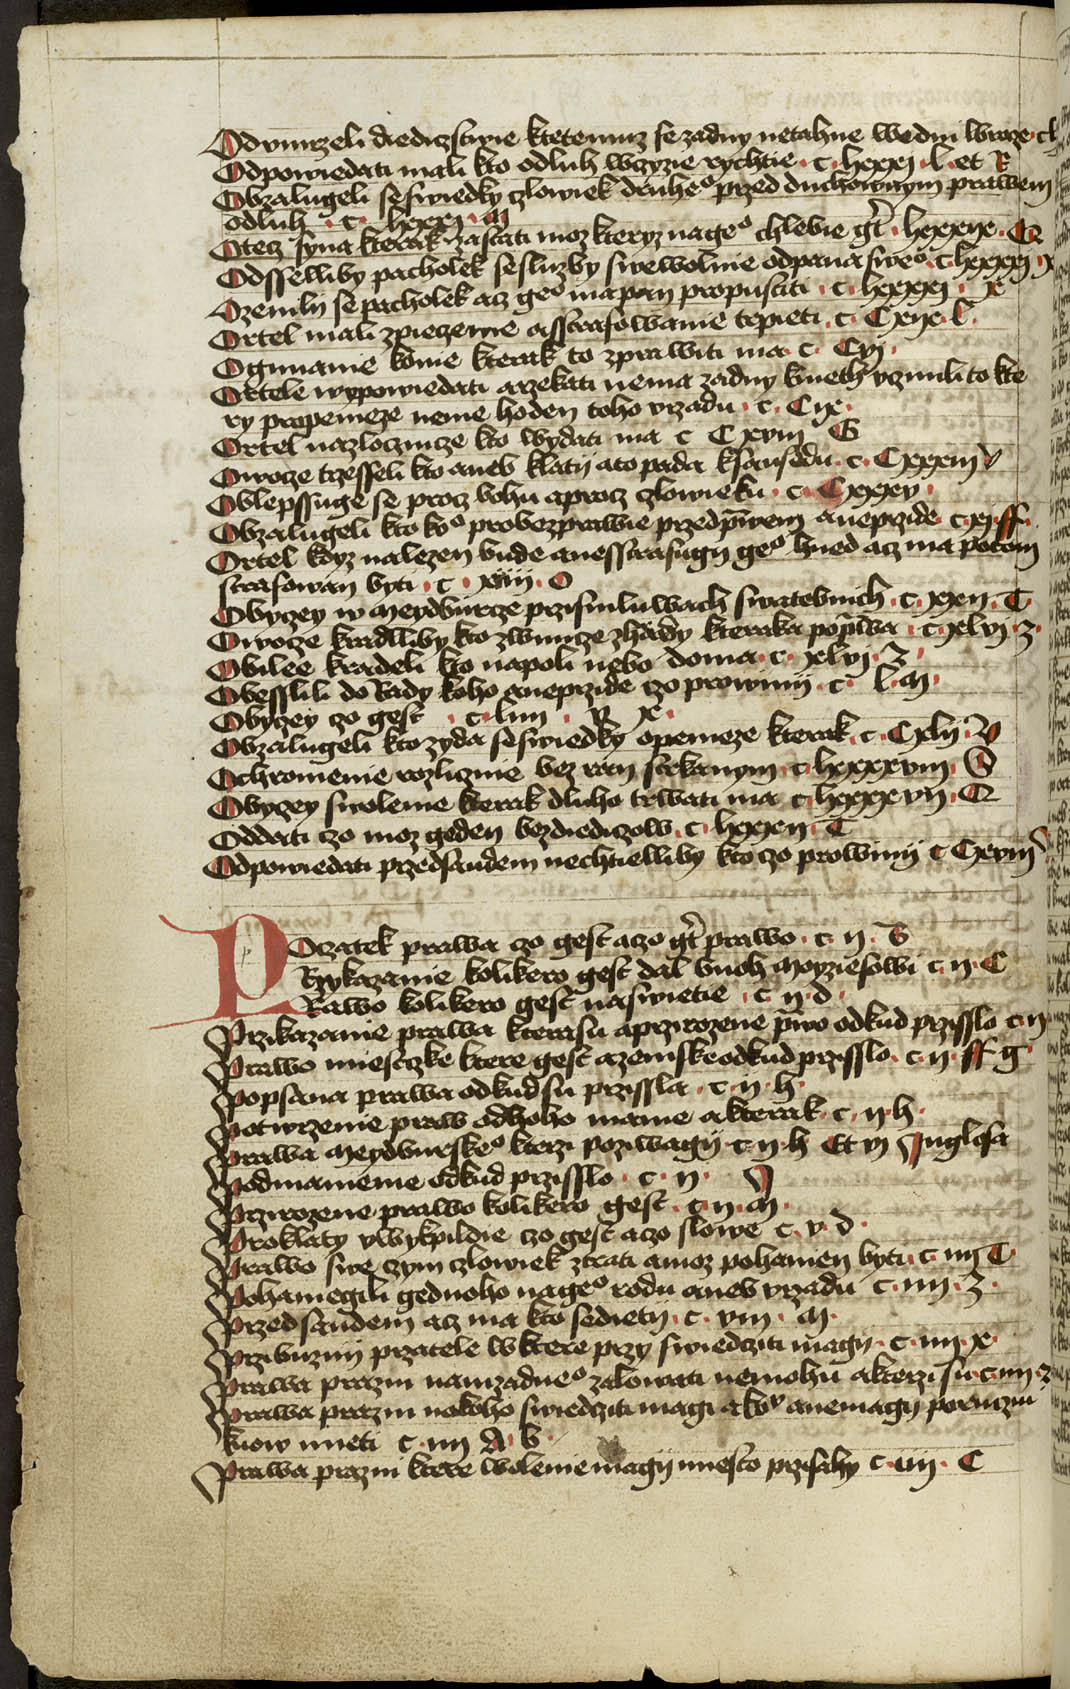 Odumrzeli diediczstwie ktetemuz se zadny netahne wedni wroze · cl
Odpowiedati mali kto odluh wczyzie rychtie · c · lxxxj · l · et R
Obzalugeli seswiedky czlowiek druheº przed duchownym prawem
odluh · c · lxxxij · m
Otecz syna kterak zastati moz kteryz nageº chlebie gt · lxxxix · Q
Odsselliby pacholek sesluzby swewolnie odpana sweº · c lxxxxj · x
Ozenily se pacholek acz geº ma pan propustiti · c · lxxxxj · x
Ortel mali zpieczenie osstrafowanie trpieti · c · Cxix · l ·
Ogimanie konie kterak to zprawiti ma · c · Cvj ·
Ortele wypowiedati arzekati nema zadny kmeth uzmilito kte
ry propenieze nenie hoden toho urzadu · c · Cix ·
Ortel nazloczincze kto wydati ma c Cxviij G
Owocze trzesseli kto aneb klatij ato pada ksausedu · c · Cxxxiij v
Oblepssuge se procz bohu aprocz czlowieku · c · Cxxxv ·
Obzalugeli kto koº probezprawie przedprawem aneprzide · c · xj · ff ·
Ortel kdyz nalezen bude anesstrafugij geº hned acz ma potom
strafowan byti · c · xiiij · O
Obyczey w Meydburcze przismluwach swatebnich · c · xxij · T ·
Owocze kradlliby kto zwinicze zhrady kteraka poprawa · c · xlvj · z ·
Obilee kradeli kto napoli nebo doma · c · xlvj · z ·
Obesslili do Rady koho aneprzide czo prowinij · c · l · m ·
Obyczey czo gest · c · liiij · v x ·
Obzalugeli kto zyda seswiedky openieze kterak · c · Cxlij · v
Ochromenie rozlicznie bez ran sekanym · c · lxxxxviij · S
Obyczey swolenie kterak dluho trwati ma · c · lxxxxvij · Q
Oddati czo moz geden bezdiediczow · c · lxxxij · T
Odpowiedati przedsaudem nechtielliby kto czo prowinij c Cxviij
POczatek prawa czo gest aczo gt prawo · c · ij · B
Rzykazanie kolikero gest dal buoh Moyziesowi c · ij · C
Rawo kolikero gest naswietie · c ij · d ·
Przikazanie prawa kterasu aprzirozene prawo odkud przisslo c · ij
Prawo miestczke ktere gest azemske odkud przisslo · c · ij · ff g
Popsana prawa odkudsu przissla · c · ij · h ·
Potwrzenie praw odkoho mame akterak · c · ij · h ·
Prawa Meydburskeº kterzi poziwagij · c · ij · h Et vj In glosa
Podmanienie odkud przisslo · c · ij · N
Przirozene prawo kolikero gest · c · ij · m ·
Proklaty vwykpildie czo gest aczo slowe c · v · d ·
Prawo swe czym czlowiek ztrati amoz pohanien byti · c · iiij T ·
Pohaniegili gednoho nageº rodu aneb urzadu c · iiij · z ·
Przedsaudem acz ma kto sedieti · c · viij · m ·
Przibuzni przatele wktere przy swiedcziti magij · c · iiij · x ·
Prawa prazni namzadneº zalowati nemohu akterzi su · c · iiij · z
Prawa prazni nakoho swiedcziti magi akoº anemagij porucznij
kuow mieti c · iiij A · b ·
Prawa prazni ktere wolenie magij miesto przisahy c · iiij · C